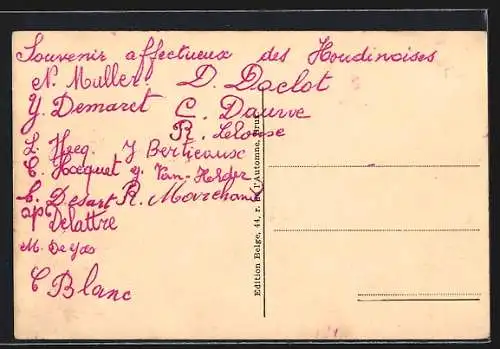 Souvenir affectueux des Houdinoises
N. Muller D. Doclot
Y. Demaret C. Dauvve
R. Lelouse
L. Hecq. J Berticaux
C. Hocquet y. Van-Holder
E. Desart R. Marchand
Delattre
M. De
C Blanc
Edition Belge, 44, r. de l'Automne, Brux